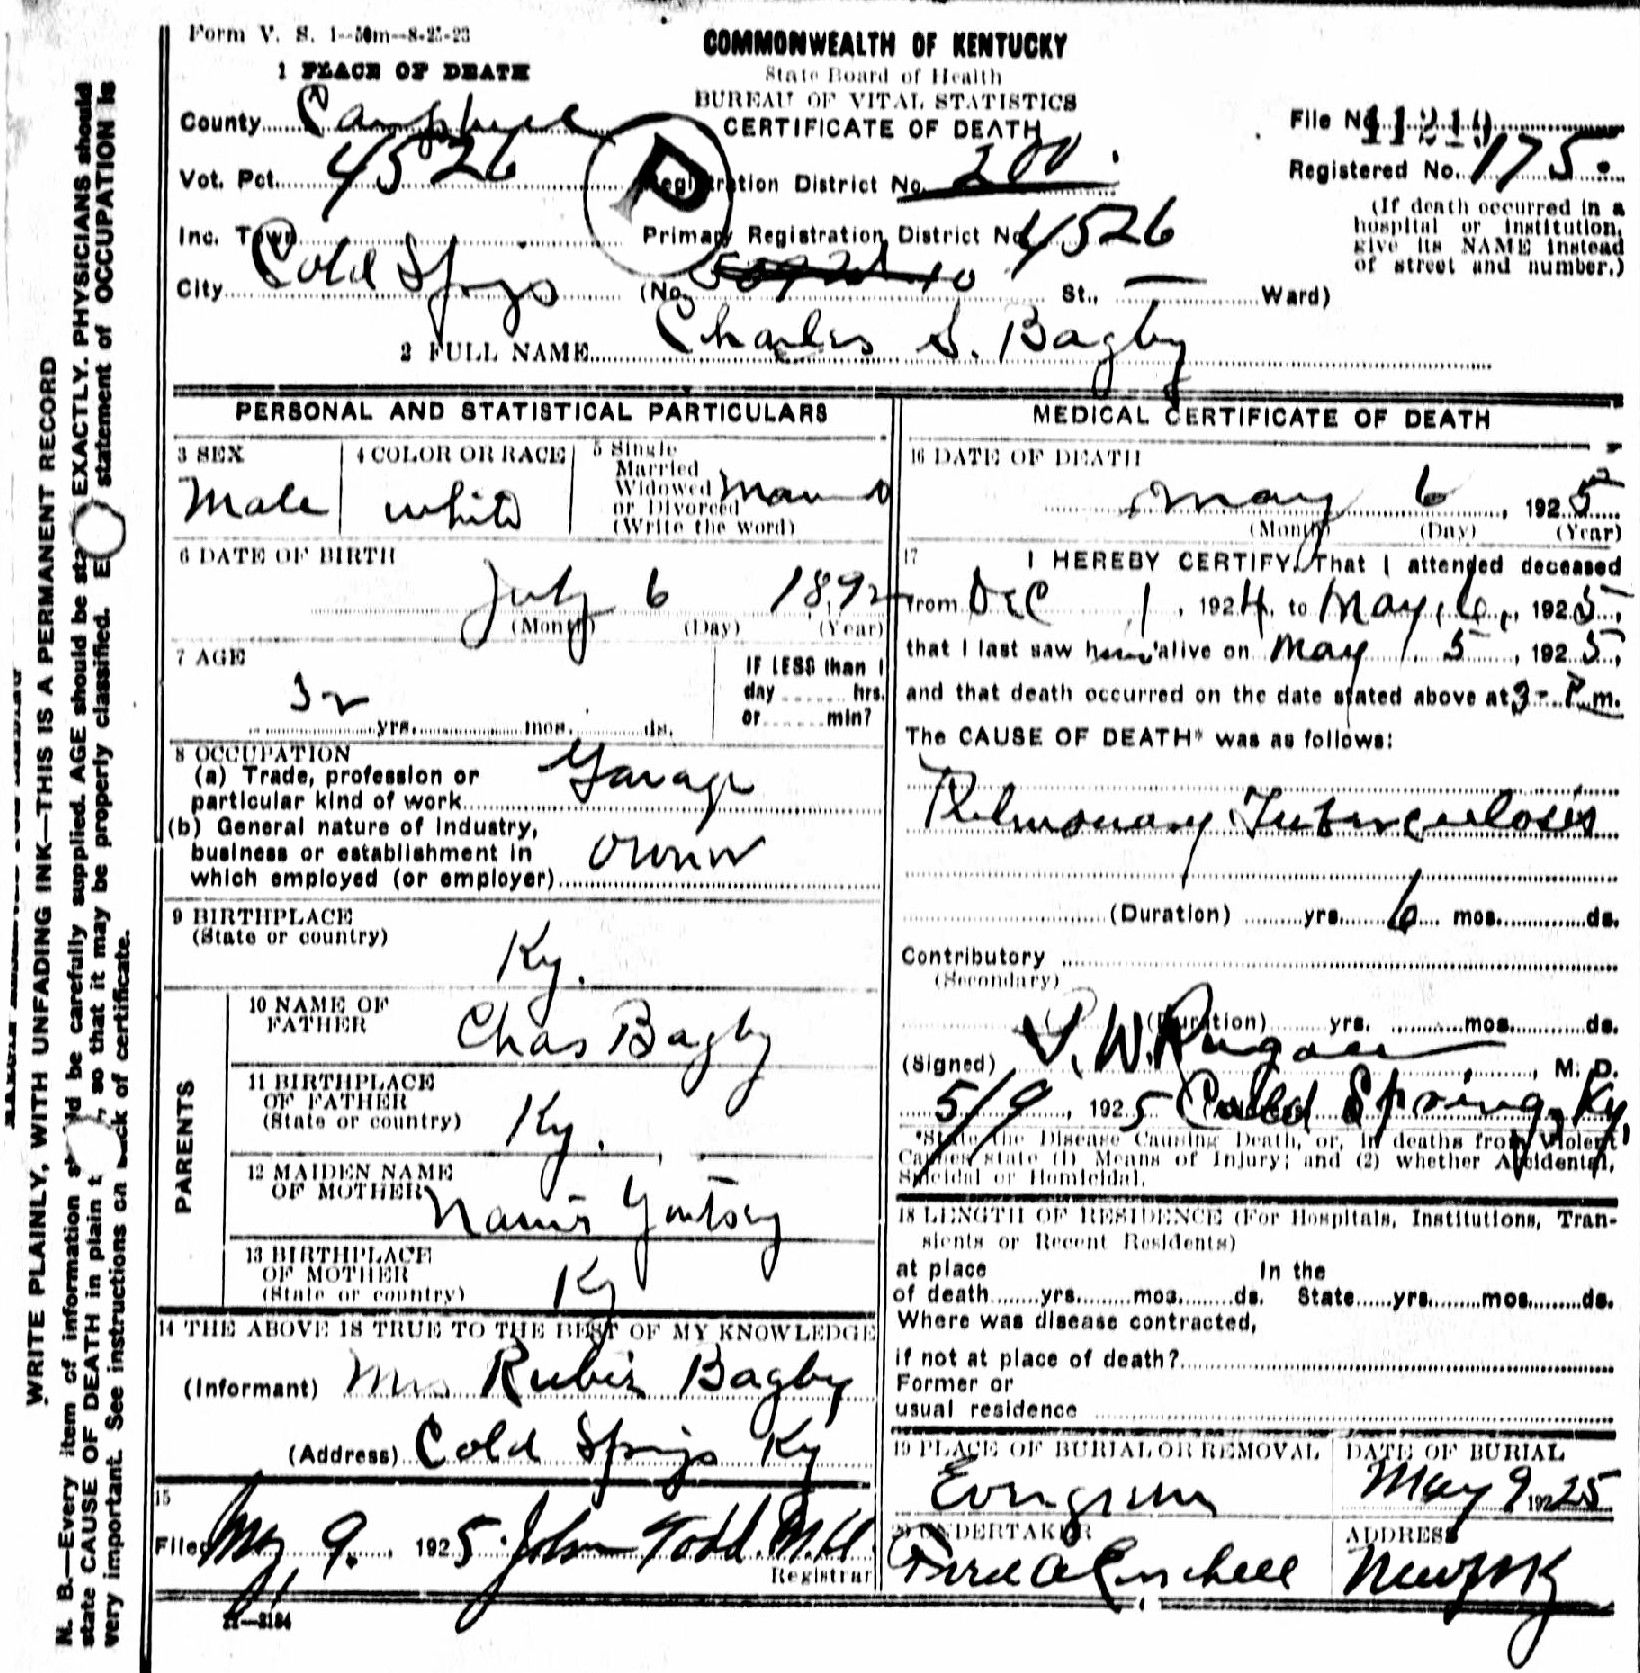 Form V. S. 1--50m--8-25-23
COMMONWEALTH OF KENTUCKY
State Board of Health
BUREAU OF VITAL STATISTICS
CERTIFICATE OF DEATH
1 PLACE OF DEATH
County Campbell
Vot. Pct. 4526
Inc. Town
City Cold Springs
Registration District No. 200
Primary Registration District No. 4526
(No. St., Ward)
File No. 11210
Registered No. 175.
(If death occurred in a
hospital or institution,
give its NAME instead
of street and number.)
2 FULL NAME Charles S. Bagby
PERSONAL AND STATISTICAL PARTICULARS
3 SEX
Male
4 COLOR OR RACE
White
5 Single
Married
Widowed
or Divorced
(Write the word)
Married
6 DATE OF BIRTH
July 6 1892
(Month) (Day) (Year)
7 AGE
32 yrs. mos. ds.
IF LESS than 1
day hrs.
or min?
8 OCCUPATION
(a) Trade, profession or
particular kind of work Garage
(b) General nature of industry,
business or establishment in
which employed (or employer) owner
9 BIRTHPLACE
(State or country)
Ky.
PARENTS
10 NAME OF
FATHER
Chas Bagby
11 BIRTHPLACE
OF FATHER
(State or country)
Ky.
12 MAIDEN NAME
OF MOTHER
13 BIRTHPLACE
OF MOTHER
(State or country)
Ky
14 THE ABOVE IS TRUE TO THE BEST OF MY KNOWLEDGE
(Informant) Mrs Rubie Bagby
(Address) Cold Springs Ky
15
Filed May 9. 1925. John Todd. M.D.
Registrar
MEDICAL CERTIFICATE OF DEATH
16 DATE OF DEATH
May 6, 1925
(Month) (Day) (Year)
17 I HEREBY CERTIFY, That I attended deceased
from Dec 1, 1924, to May, 6, 1925,
that I last saw him alive on May 5, 1925,
and that death occurred on the date stated above at 3- P.m.
The CAUSE OF DEATH* was as follows:
Pulmonary Tuberculosis
(Duration) yrs. 6 mos. ds.
Contributory
(Secondary)
(Duration) yrs. mos. ds.
(Signed) M. D.
5/9, 1925 Cold Spring, Ky,
*State the Disease Causing Death, or, in deaths from Violent
Causes state (1) Means of Injury; and (2) whether Accidental,
Suicidal or Homicidal.
18 LENGTH OF RESIDENCE (For Hospitals, Institutions, Tran-
sients or Recent Residents)
at place In the
of death yrs. mos. ds. State yrs. mos. ds.
Where was disease contracted,
if not at place of death?
Former or
usual residence
19 PLACE OF BURIAL OR REMOVAL
Evergreen
DATE OF BURIAL
May 9 1925
20 UNDERTAKER
ADDRESS
Newport Ky
WRITE PLAINLY, WITH UNFADING INK—THIS IS A PERMANENT RECORD
N. B.—Every item of information should be carefully supplied. AGE should be stated EXACTLY. PHYSICIANS should
state CAUSE OF DEATH in plain so that it may be properly classified. statement of OCCUPATION is
very important. See instructions on back of certificate.